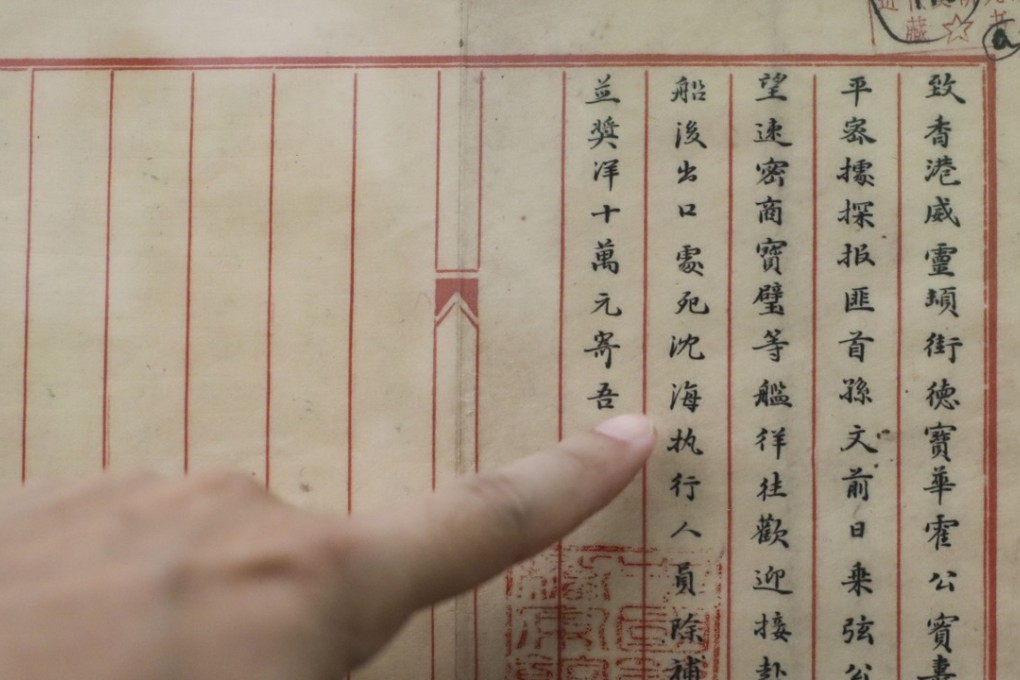 致香港威靈頓街德寶華霍公實
平密據探报匪首孫文前日乘弦
望速密商寶璧等艦徉往歡迎接卦
船後出口處死沈海执行人員除補
並奬洋十萬元寄吾
藏
a